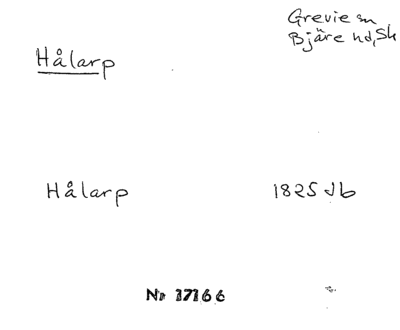 Grevie sn
Bjäre hd, Sk
Hålarp
Hålarp 1825 Jb
Nr 17166